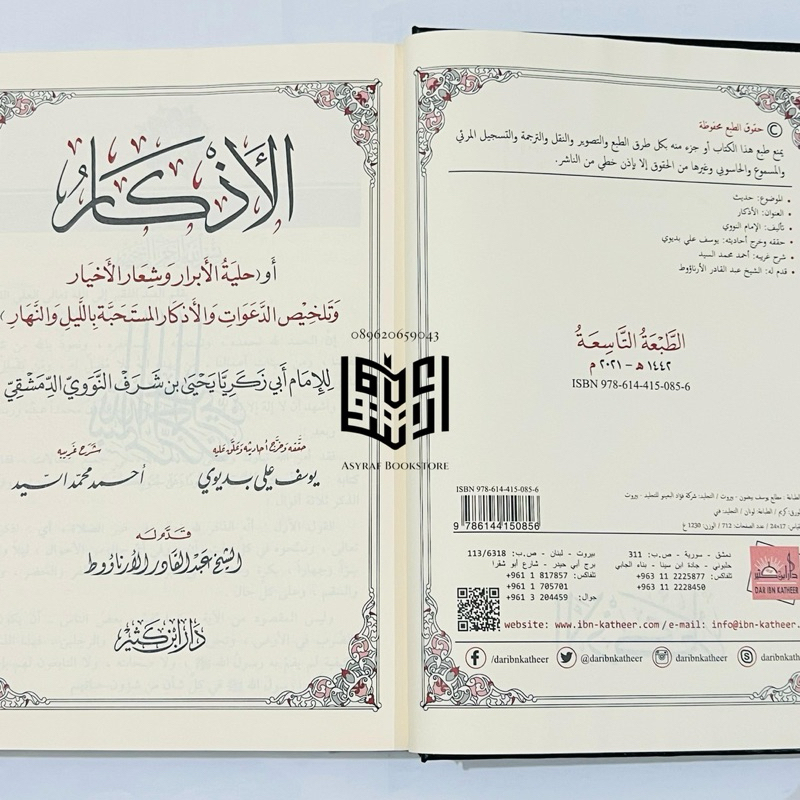 حقوق الطبع محفوظة ©
يمنع طبع هذا الكتاب أو جزء منه بكل طرق الطبع والتصوير والنقل والترجمة والتسجيل المرئي
والمسموع والحاسوبي وغيرها من الحقوق إلا بإذن خطي من الناشر.
• الموضوع: حديث
• العنوان: الأذكار
• تأليف: الإمام النووي
• حققه وخرج أحاديثه: يوسف علي بديوي
• شرح غريبه: أحمد محمد السيد
• قدم له: الشيخ عبد القادر الأرناؤوط
الطَّبْعَةُ التَّاسِعَةُ
١٤٤٢ هـ - ٢٠٢١ م
ISBN 978-614-415-085-6
ISBN 978-614-415-085-6
9 786144 150856
الطباعة: مطابع يوسف بيضون - بيروت / التجليد: شركة فؤاد البعينو للتجليد - بيروت
الورق: كريم / الطباعة: لونان / التجليد: فني
القياس: 17×24 / عدد الصفحات: 712 / الوزن: 1230 غ
دمشق - سورية - ص.ب: 311
حلبوني - جادة ابن سينا - بناء الجابي
تلفاكس: 2225877 11 963+
2228450 11 963+
بيروت - لبنان - ص.ب: 113/6318
برج أبي حيدر - شارع أبو شقرا
تلفاكس: 817857 1 961+
705701 1 961+
جوال: 204459 3 961+
دار ابن كثير
DAR IBN KATHEER
website: www.ibn-katheer.com / e-mail: info@ibn-katheer.com
/daribnkatheer
@daribnkatheer
daribnkatheer
الأذكار
أو (حليَةُ الأبرار وَشعَار الأخيار
وَتلخيص الدَّعَوَات وَالأذكار المستَحبَّة بِاللَّيل وَالنَّهار)
للإمام أبي زكريَّا يَحْيَى بن شَرَف النَّوَوي الدِّمَشقيّ
حققه وخرّج أحاديثه وعلّق عليه
يوسف علي بديوي
شرح غريبه
أحمد محمّد السيد
قدَّم له
الشيخ عبد القادر الأرناؤوط
دار ابن كثير
089620659043
ASYRAF BOOKSTORE